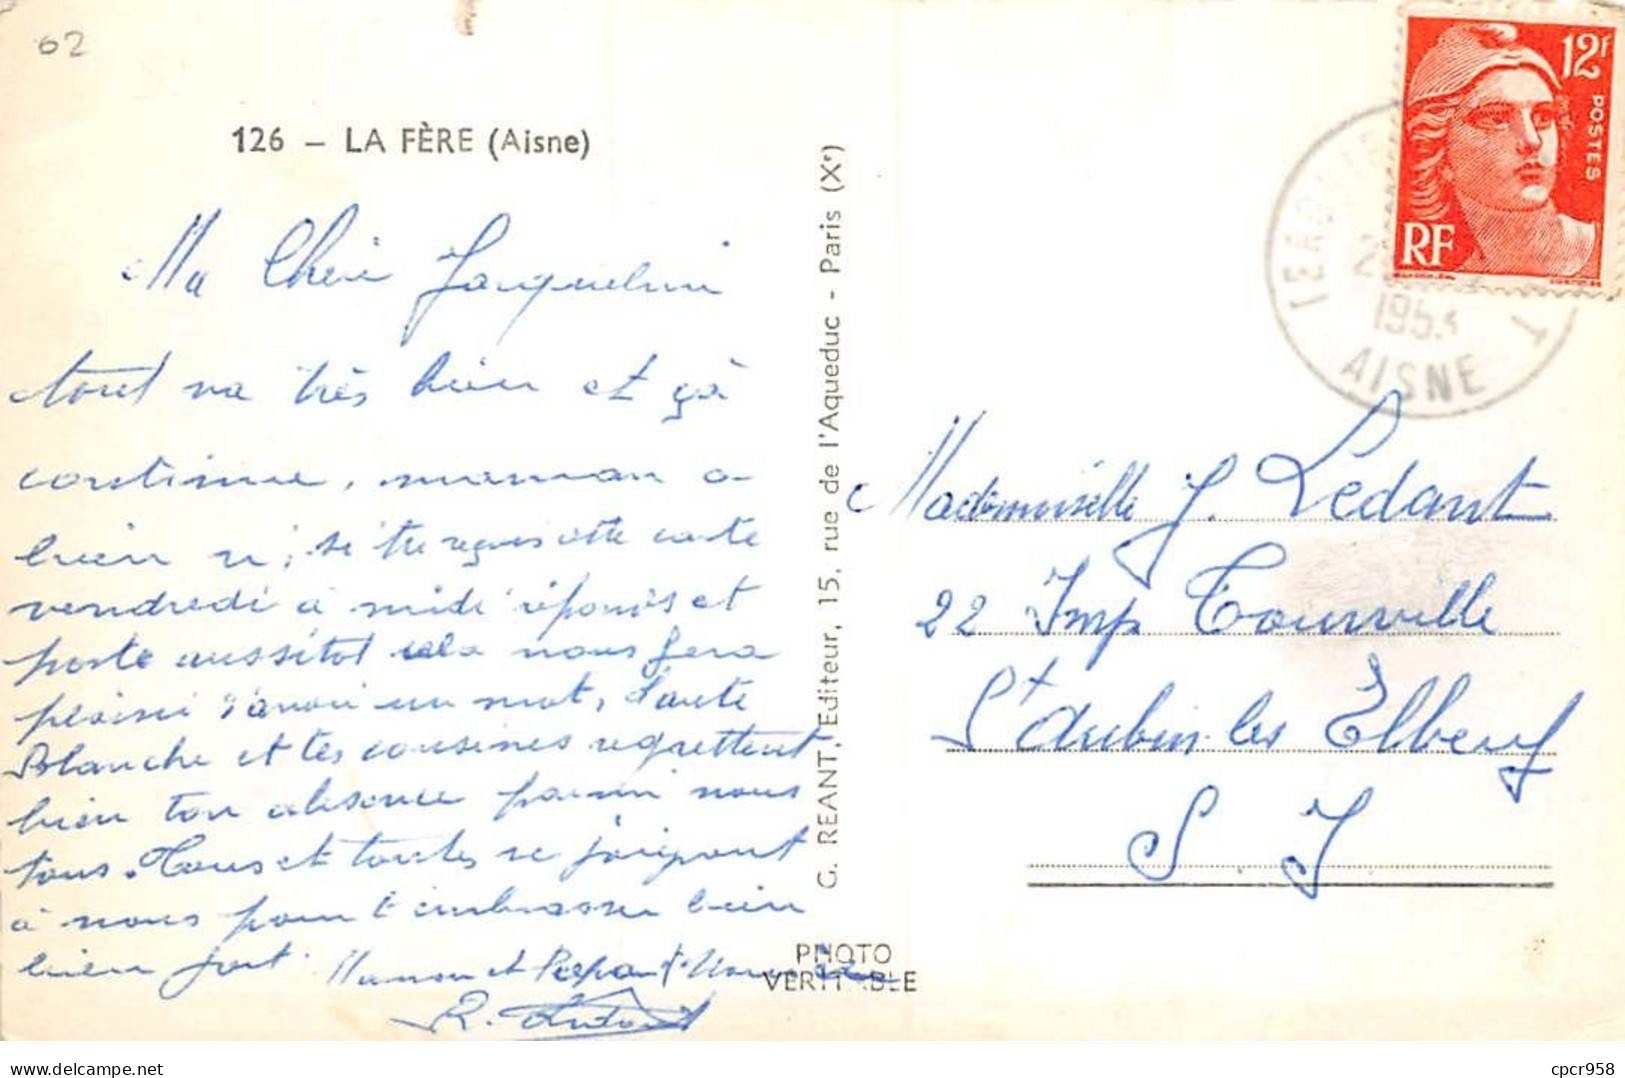 62
126 – LA FÈRE (Aisne)
Ma Chérie Jacqueline
tout va très bien et çà
continue, maman a
bien ri, si tu reçois cette carte
vendredi à midi réponds et
poste aussitot cela nous fera
plaisir d'avoir un mot, tante
Blanche et tes cousines regrettent
bien ton absence parmi nous
tous. Tous et toutes se joignent
à nous pour t'embrasser bien
bien fort. Maman et Papa
R.
G. RÉANT, Éditeur, 15, rue de l'Aqueduc - Paris (Xe)
PHOTO
VERITABLE
12F
POSTES
RF
1953
AISNE
Mademoiselle J. Ledant
22 Imp Tourville
St Aubin les Elbeuf
S. I
https://www.delcampe.net
cpcr958